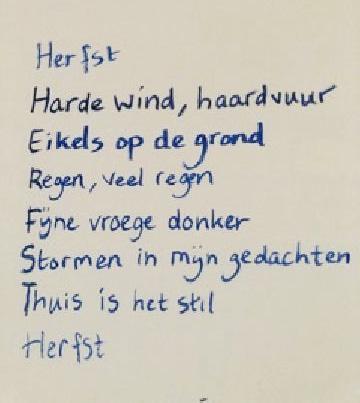 Herfst
Harde wind, haardvuur
Eikels op de grond
Regen, veel regen
Fijne vroege donker
Stormen in mijn gedachten
Thuis is het stil
Herfst